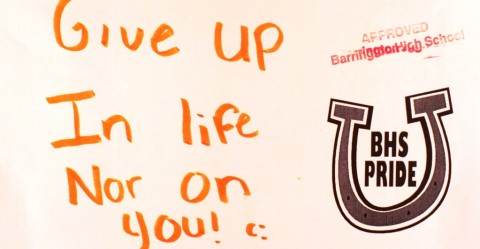 Give up
In life
Nor on
you! c:
APPROVED
Barrington High School
BHS
PRIDE